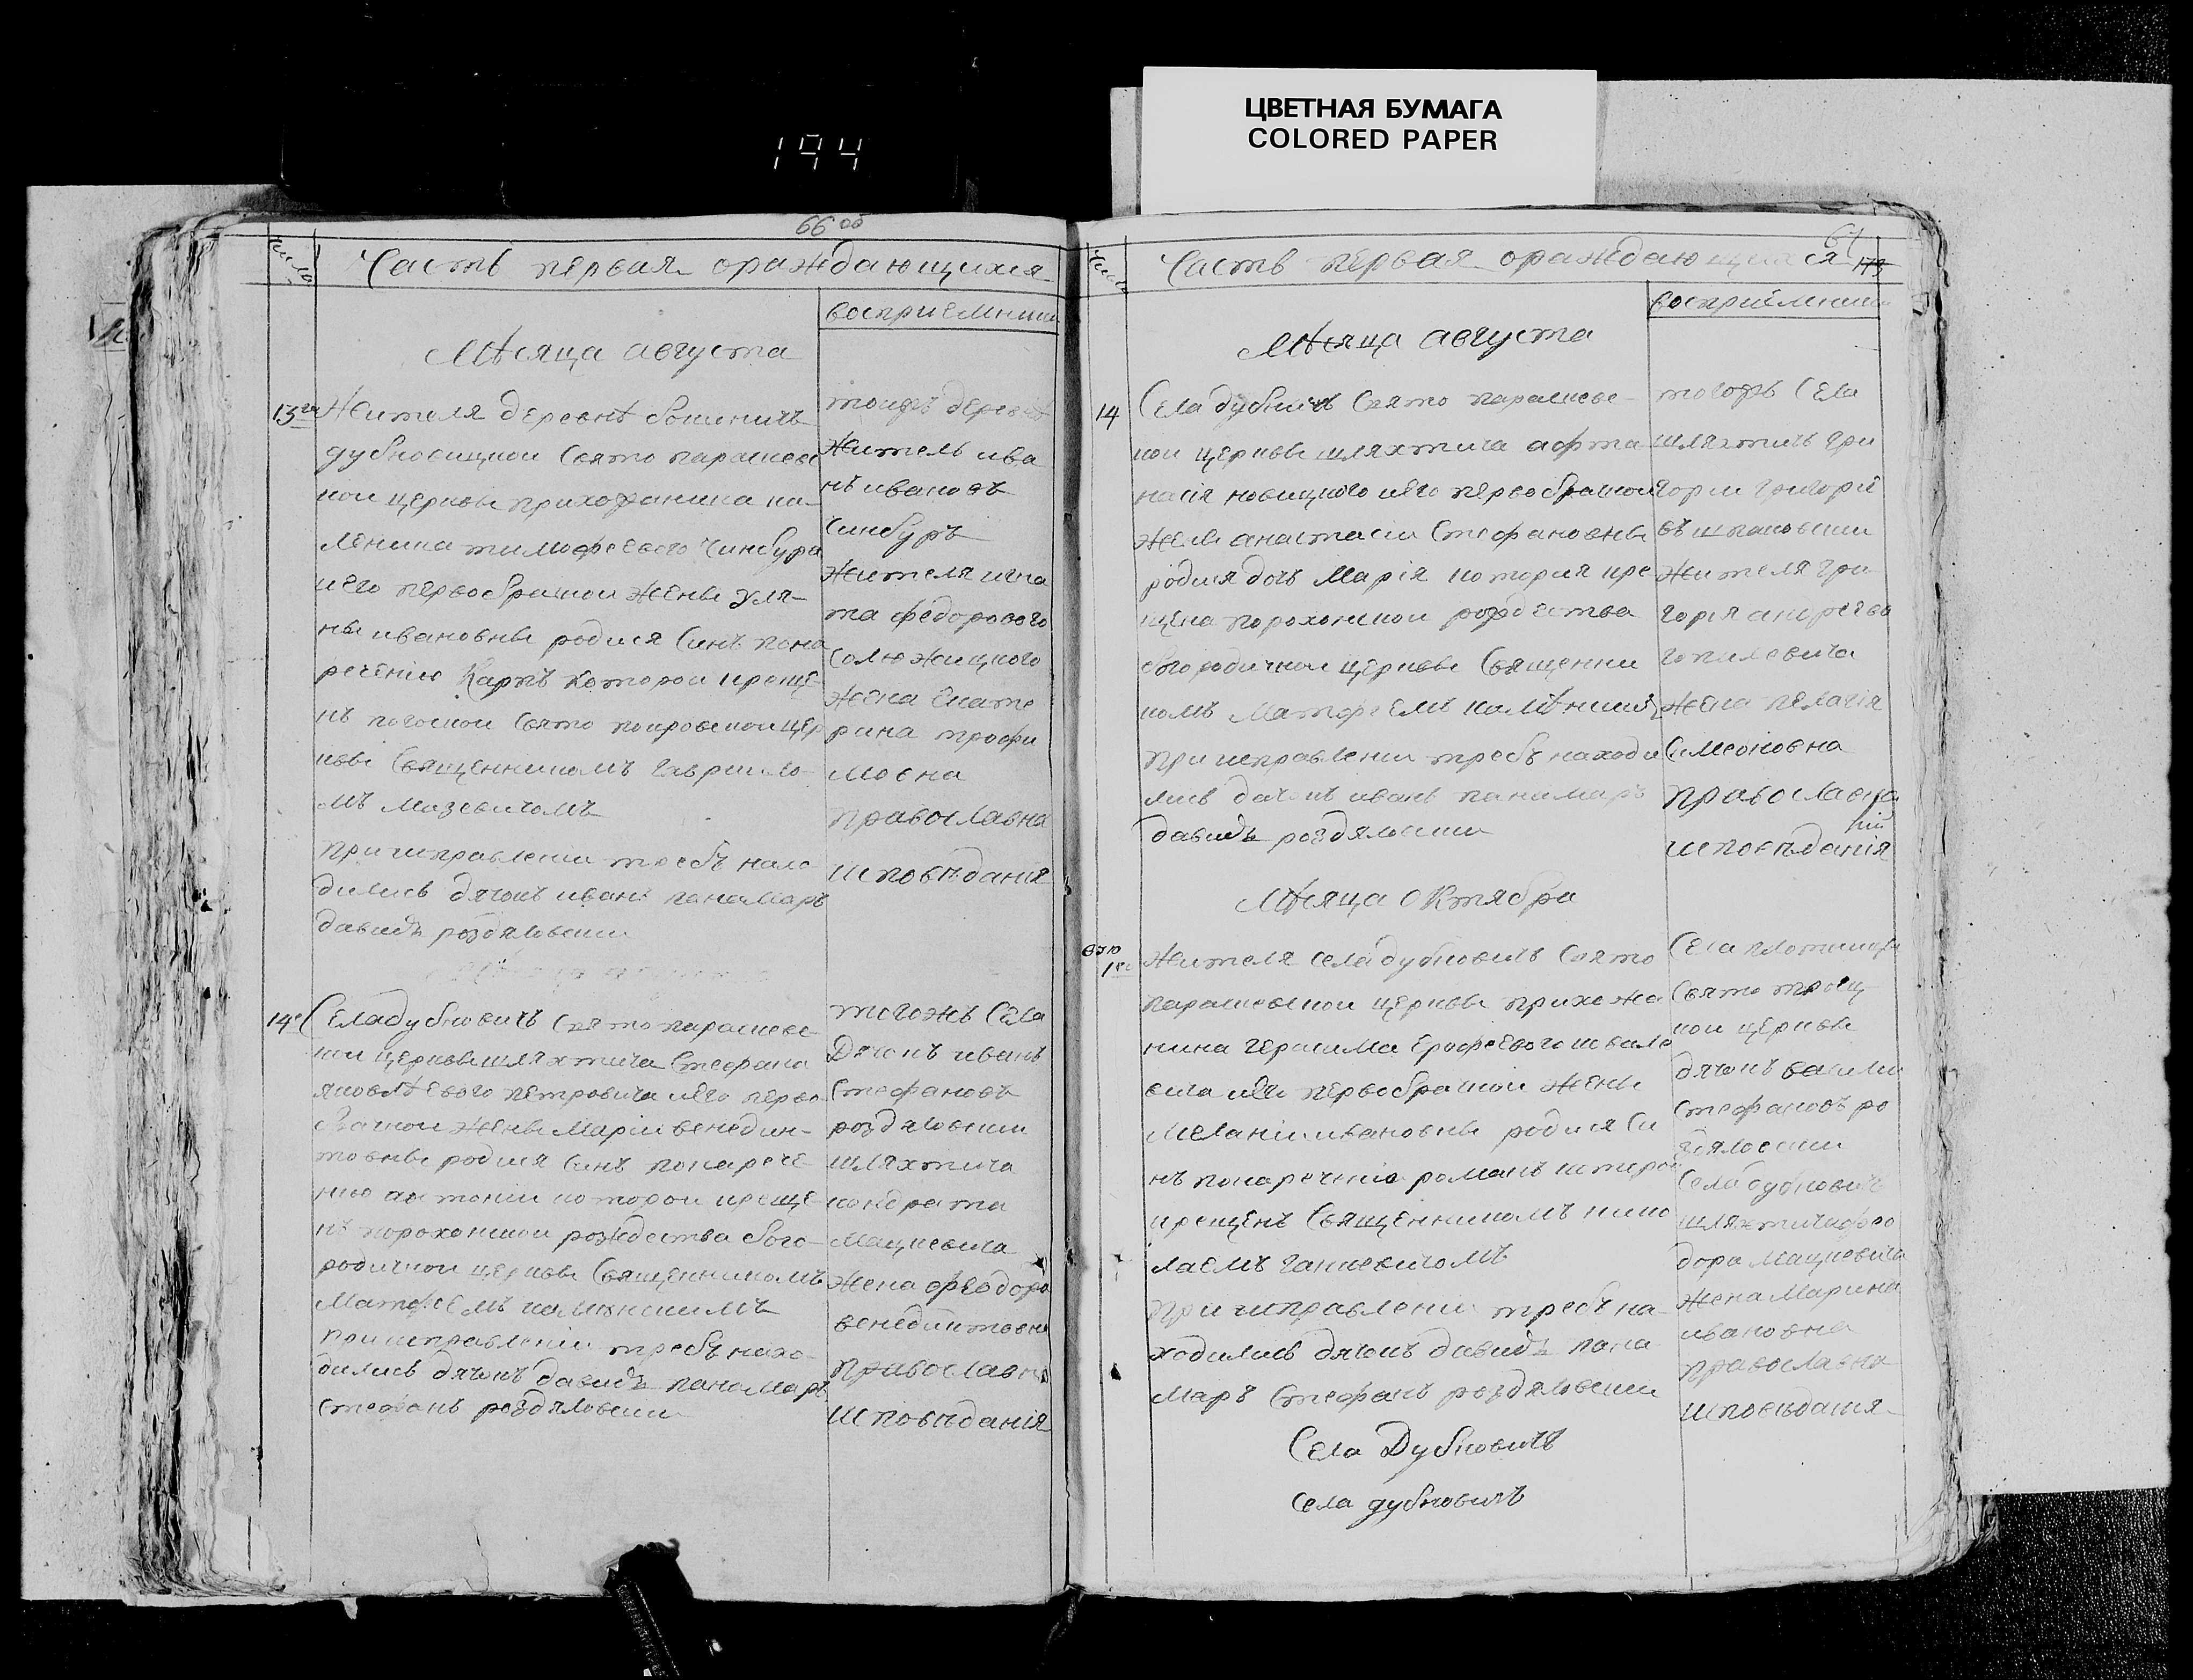 ЦВЕТНАЯ БУМАГА
COLORED PAPER
194
66 об
Число
Часть первая ораждающихся
восприемники
Мѣсяца августа
13го
Жителя деревнѣ
дубновицкой Свято параскеве
кой церкви прихожанина ка
леника тимофеевого Чинбура
и его первобрачной жены уля
ны ивановны родися Синъ пона
речению Карпъ которой креще
нъ погоской Свято покровской цер
кви Священникомъ гаврило
мъ мизевичомъ
при исправлении требъ нахо
дились дячокъ иванъ панамаръ
давидъ роздяловски
тоиже деревнѣ
житель ива
нъ ивановъ
Синбуръ
жителя игна
та федорового
жена екате
рина трофи
мовна
православна
исповѣдания
14
Села дубновичъ Свято параскеве
кой церкви шляхтича Стефана
яковлѣевого петровича и его перво
брачной жены Марии венедик
товны родися Синъ понарече
нию антоний которой креще
нъ порохонской рождества бого
родичной церкви Священникомъ
Матфеемъ каминскимъ
при исправлении требъ нахо
дились дячокъ давидъ панамаръ
Стефанъ роздяловски
тогожъ Села
Дячокъ иванъ
Стефановъ
роздяловски
шляхтича
кондрата
мацкевича
жена феодора
венедиктовна
православна
исповѣдания
67
173
Число
Часть первая ораждающихся
восприемники
Мѣсяца августа
14
Села дубновичъ Свято параскеве
кой церкви шляхтича афта
насия новицкого и его первобрачной
жены анастасии Стефановны
родися дочь Мария котория кре
щена порохонской рождества
богородичной церкви Священни
комъ Матфеемъ камѣнский
при исправлении требъ находи
лись дячокъ иванъ панамаръ
давидъ роздяловски
тогожъ Села
шляхтичъ гри
горий григорие
въ шпаковски
жителя гри
гория андреева
жена пелагия
Симеоновна
православна
исповѣдания
Мѣсяца Октября
1го
Жителя села дубновичъ Свято
параскевской церкви прихожа
нина герасима ерофеевого
вича и его первобрачной жены
Мелании ивановны родися Си
нъ понаречению романъ
крещенъ Священникомъ нико
лаемъ ганкевичомъ
при исправлении требъ на
ходились дячокъ давидъ пана
маръ Стефанъ роздяловски
Села Дубновичъ
Села дубновичъ
Села
Свято троец
кой церкви
дячокъ василии
Стефановъ ро
здяловски
Села дубновичъ
шляхтича фео
дора мацкевича
жена Марина
ивановна
православна
исповѣдания